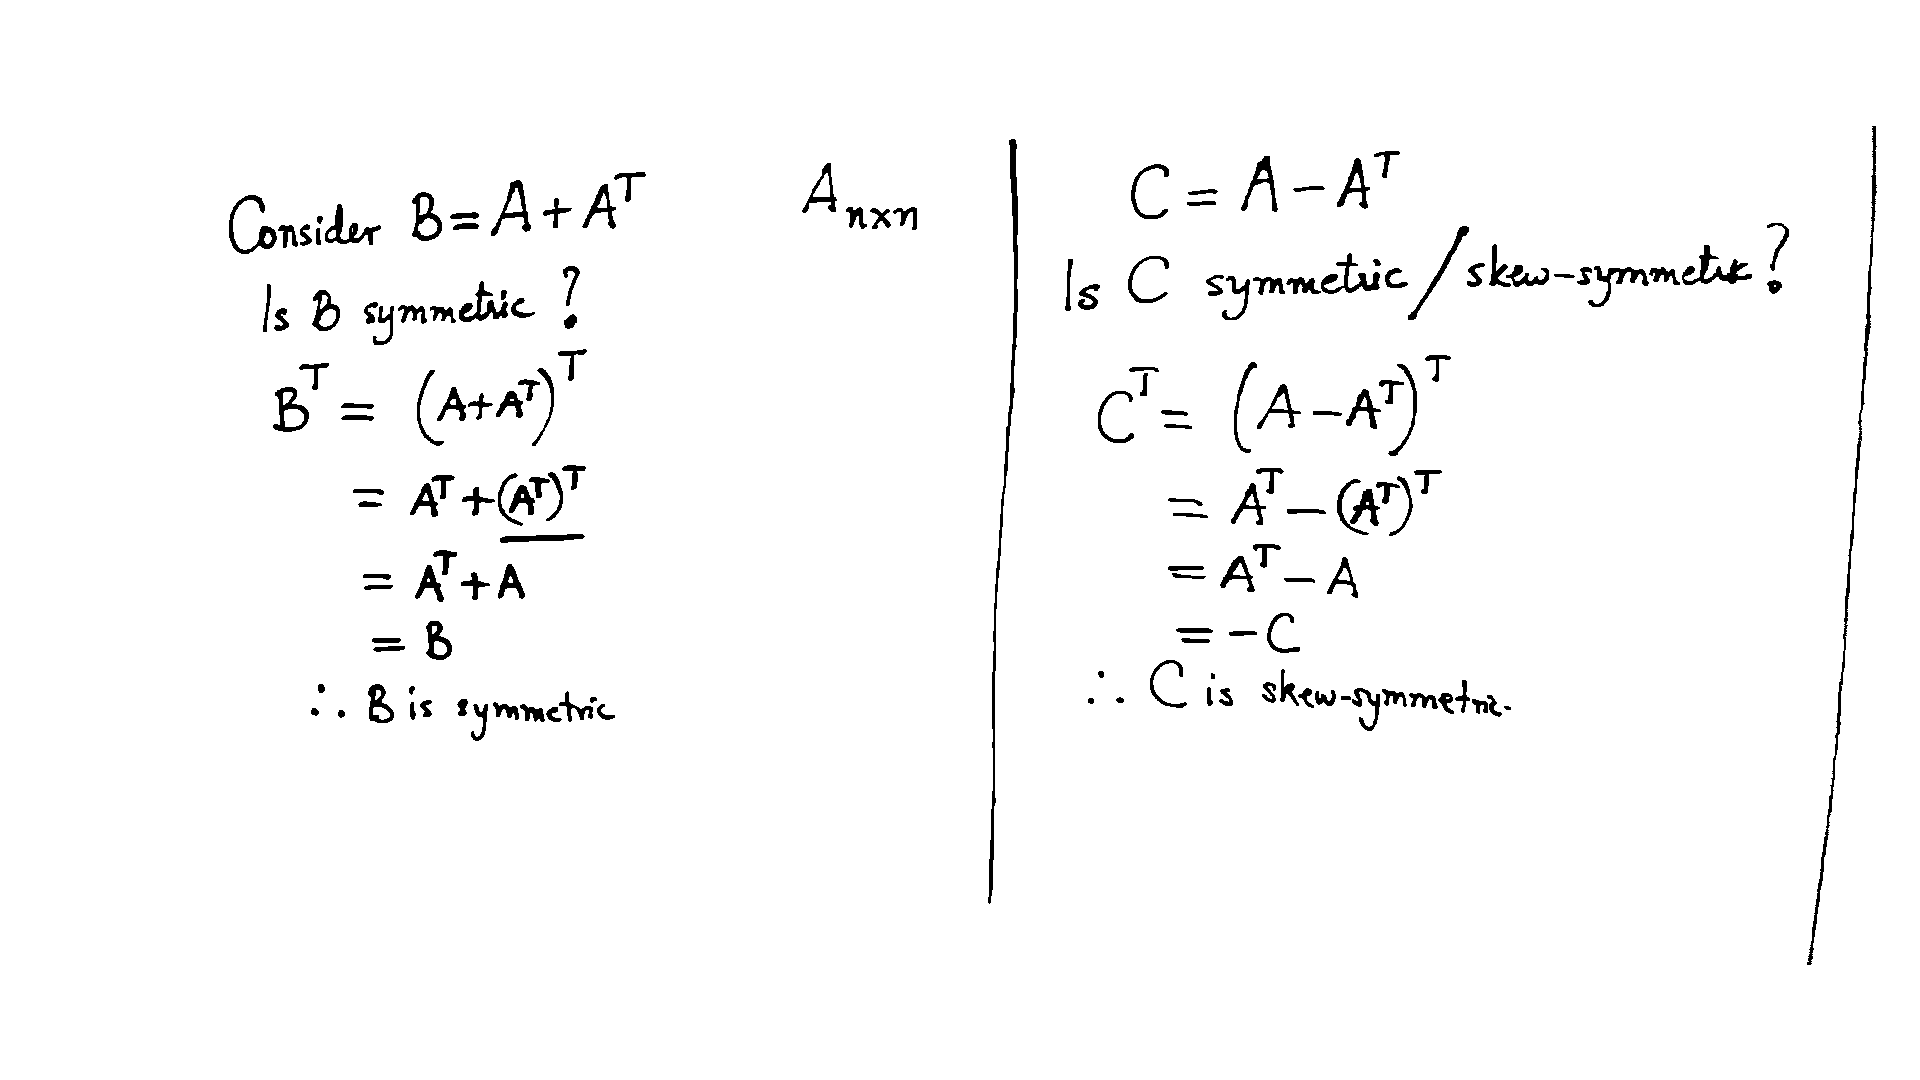 Consider B = A + Aᵀ        Aₙₓₙ
Is B symmetric ?
Bᵀ = (A+Aᵀ)ᵀ
= Aᵀ + (Aᵀ)ᵀ
= Aᵀ + A
= B
∴ B is symmetric
C = A − Aᵀ
Is C symmetric / skew-symmetric ?
Cᵀ = (A − Aᵀ)ᵀ
= Aᵀ − (Aᵀ)ᵀ
= Aᵀ − A
= −C
∴ C is skew-symmetric.